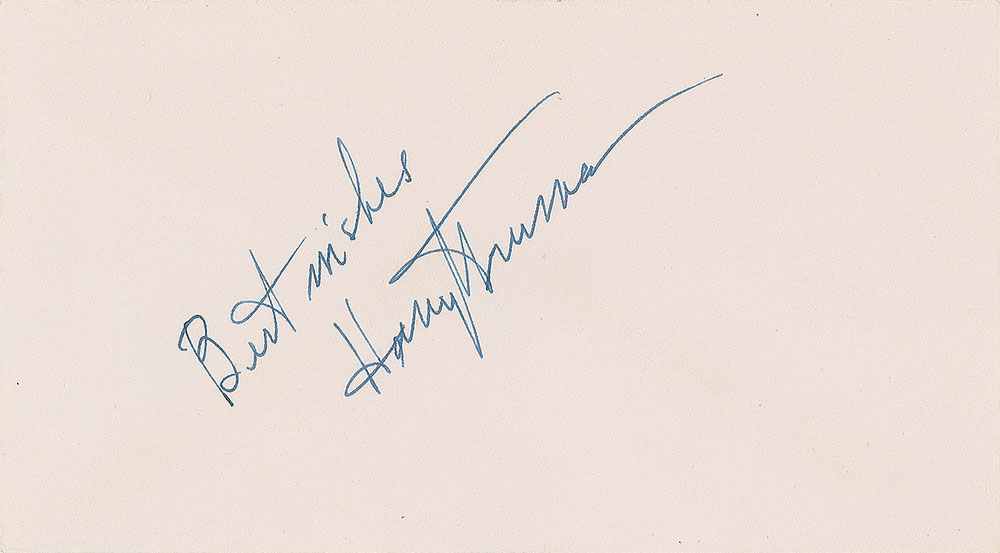 Best wishes
Harry Truman